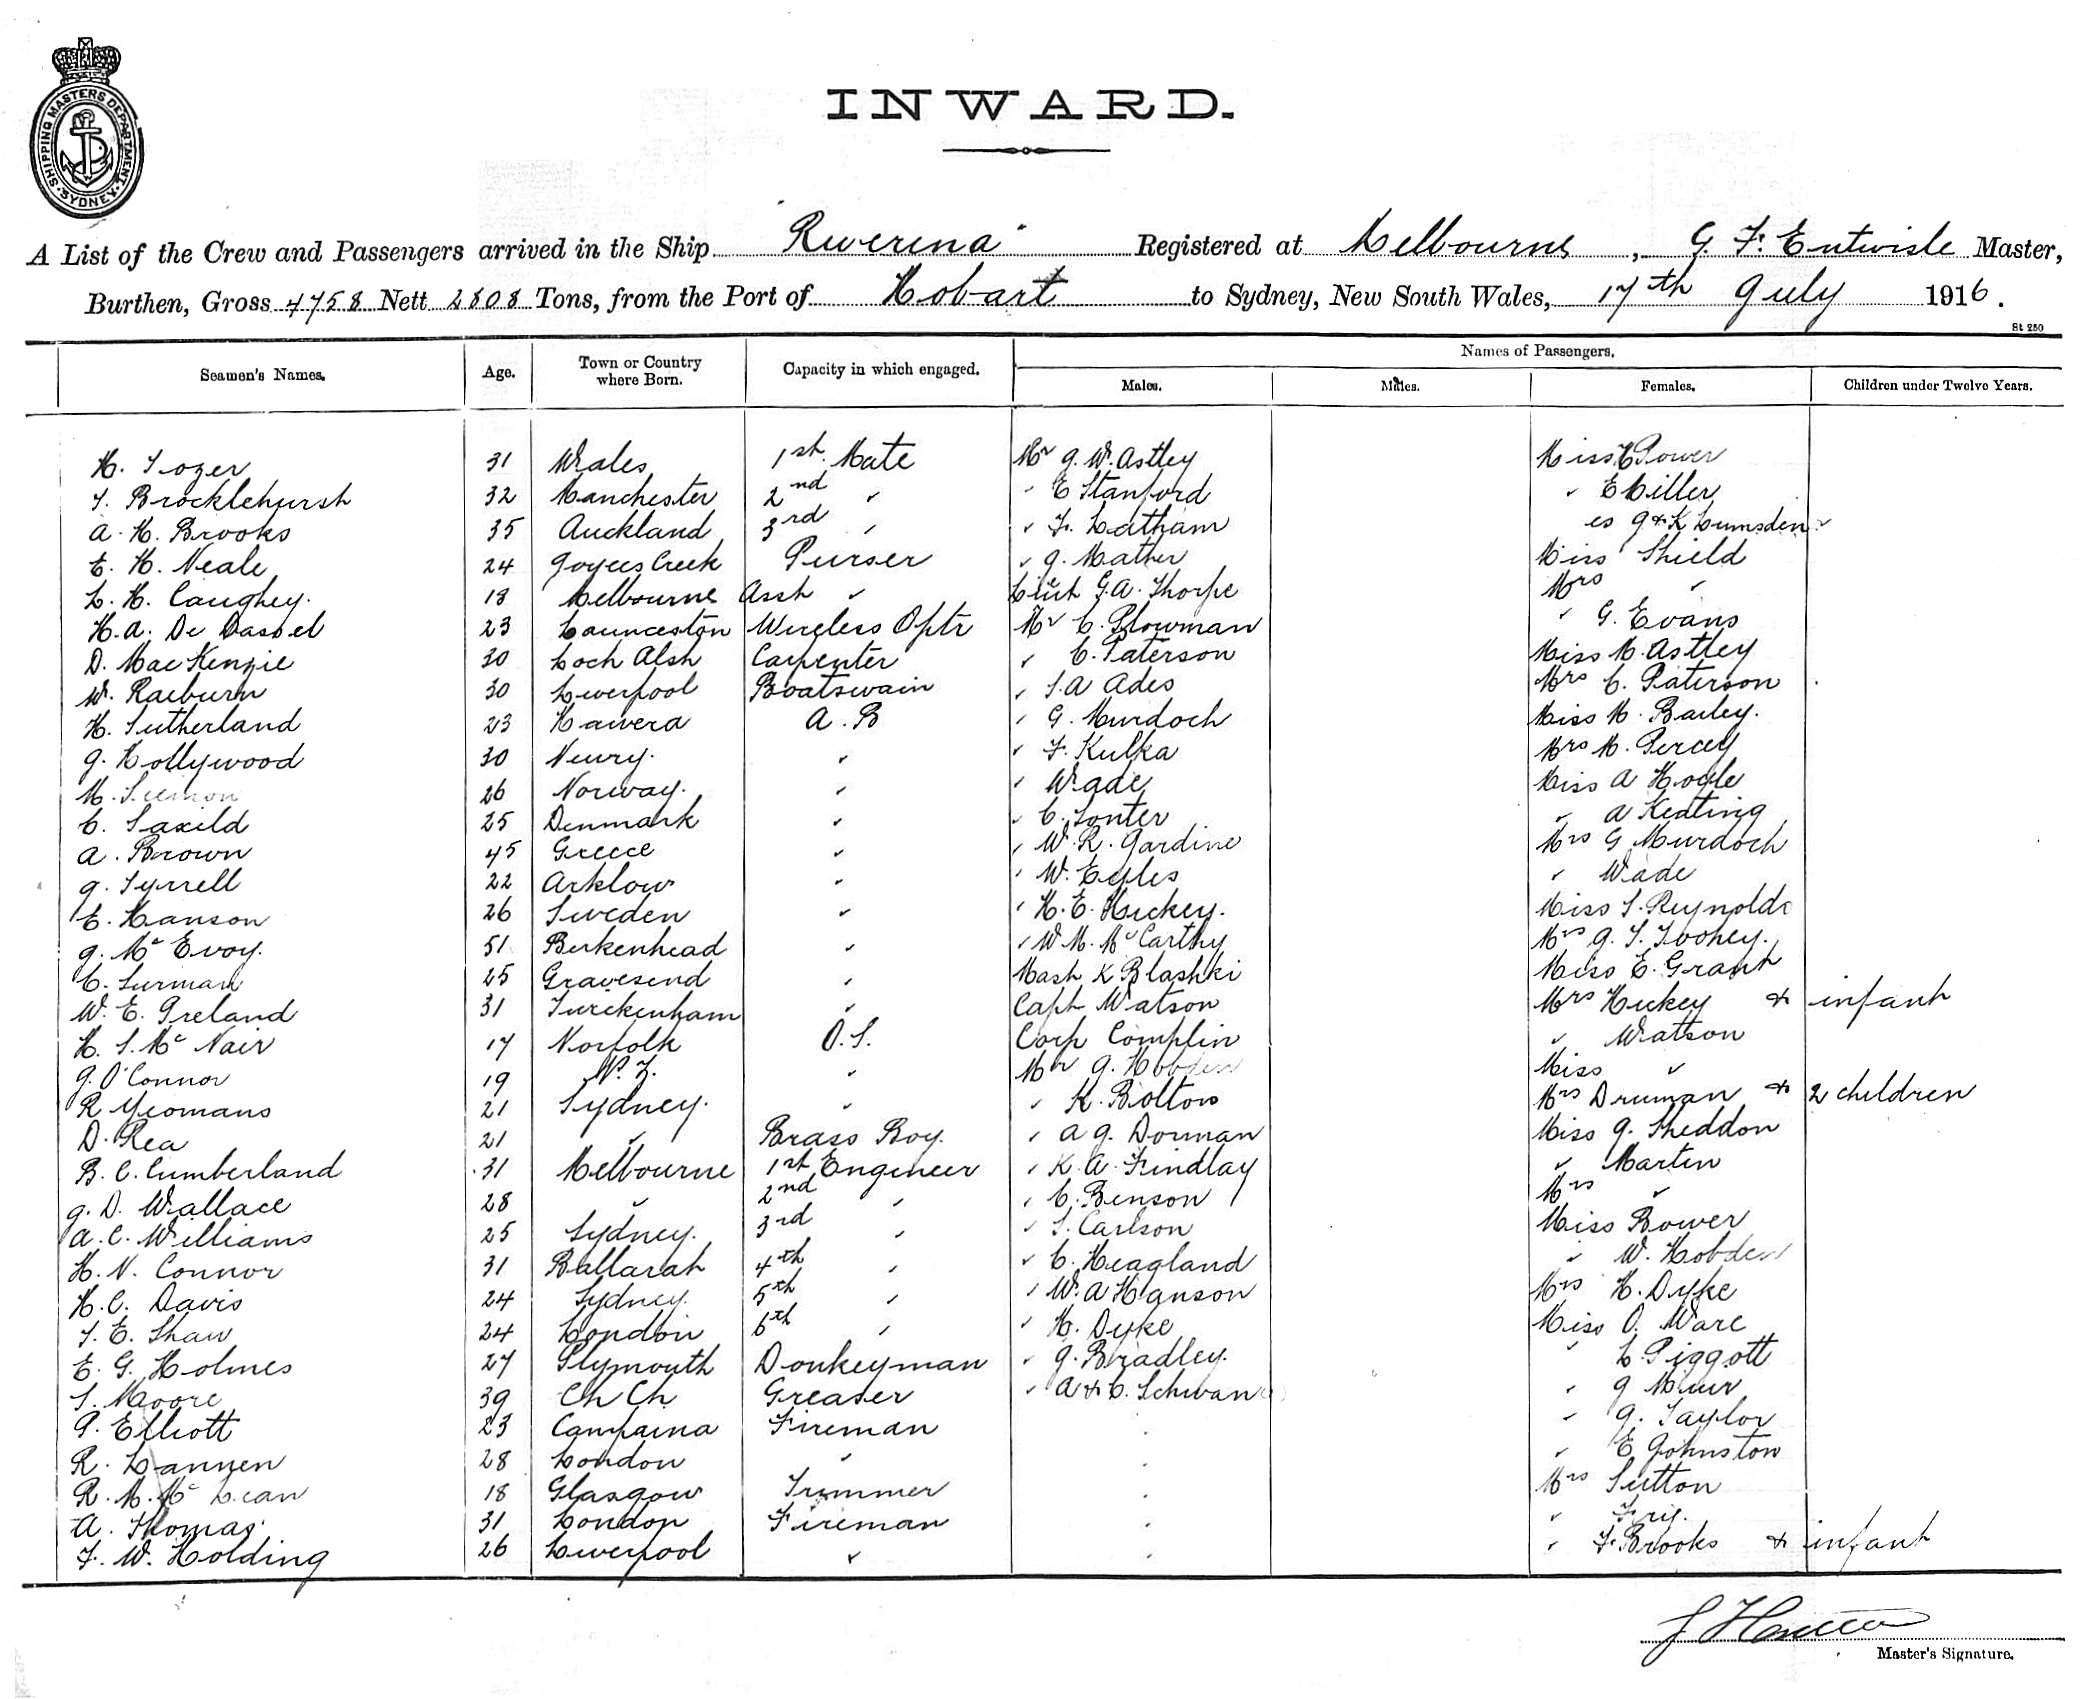 SHIPPING MASTERS DEPARTMENT. SYDNEY.
INWARD.
A List of the Crew and Passengers arrived in the Ship "Riverina" Registered at Melbourne, G. F. Entwisle Master,
Burthen, Gross 4758 Nett 2808 Tons, from the Port of Hobart to Sydney, New South Wales, 17th July 1916.
St 250
Seamen's Names. Age. Town or Country where Born. Capacity in which engaged. Names of Passengers.
Males. Males. Females. Children under Twelve Years.
H. Tozer 31 Wales 1st Mate Mr J. W. Astley Miss Power
T. Brocklehurst 32 Manchester 2nd " " E Stanford " E Miller
A. H. Brooks 35 Auckland 3rd " " F. Latham es J & K Lumsden
E. H. Neale 24 Joyces Creek Purser " J. Mather Miss Shield
L. H. Caughey. 18 Melbourne Asst " Lieut G. A. Thorpe Mrs "
H. A. De Dassel 23 Launceston Wireless Optr Mr C. Plowman " G. Evans
D. MacKenzie 30 Loch Alsh Carpenter " C. Paterson Miss M. Astley
W. Raeburn 30 Liverpool Boatswain " S. A Ades Mrs C. Paterson
H. Sutherland 23 Hawera A. B " G. Murdoch Miss M. Bailey.
J. Hollywood 30 Newry. " " F. Kulka Mrs M. Percey
M. 26 Norway. " " Wade Miss A Hogle
C. Saxild 25 Denmark " " C. Sonter " A Keating
A. Brown 45 Greece " " W. R. Jardine Mrs G Murdoch
J. Tyrrell 22 Arklow " " W. Eyles " Wade
E. Hanson 26 Sweden " " H. E. Hickey. Miss S. Reynolds
J. McEvoy. 51 Berkenhead " " W. M. McCarthy Mrs J. T. Toohey.
C. Surman 25 Gravesend " Mast K Blashki Miss E. Grant
W. E. Ireland 31 Turckenham " Capt Watson Mrs Hickey & infant
H. S. McNair 17 Norfolk O.S. Corp Complin " Watson
J. O'Connor 19 N. Z. " Mr J. Hobden Miss "
R Yeomans 21 Sydney. " " K. Bolton Mrs Druman & 2 children
D. Rea 21 " Brass Boy. " A J. Dorman Miss J. Sheddon
B. C. Cumberland 31 Melbourne 1st Engineer " K. A. Findlay " Martin
J. D. Wallace 28 " 2nd " " C. Benson Mrs "
A. C. Williams 25 Sydney. 3rd " " S. Carlson Miss Bower
H. N. Connor 31 Ballarat 4th " " C. Heagland " W. Hobden
H. C. Davis 24 Sydney. 5th " " W. A Hanson Mrs H. Dyke
T. E. Shaw 24 London 6th " " H. Dyke Miss O. Ware
E. G. Holmes 27 Plymouth Donkeyman " J. Bradley. " L. Piggott
S. Moore 39 Ch Ch Greaser " A & C. Schwan " J Muir
P. Elliott 23 Campaina Fireman " J. Taylor
R. Lannen 28 London " " E Johnston
R. M. McLean 18 Glasgow Trimmer Mrs Sutton
A. Thomas 31 London Fireman "
F. W. Holding 26 Liverpool " " F. Brooks & infant
Master's Signature.